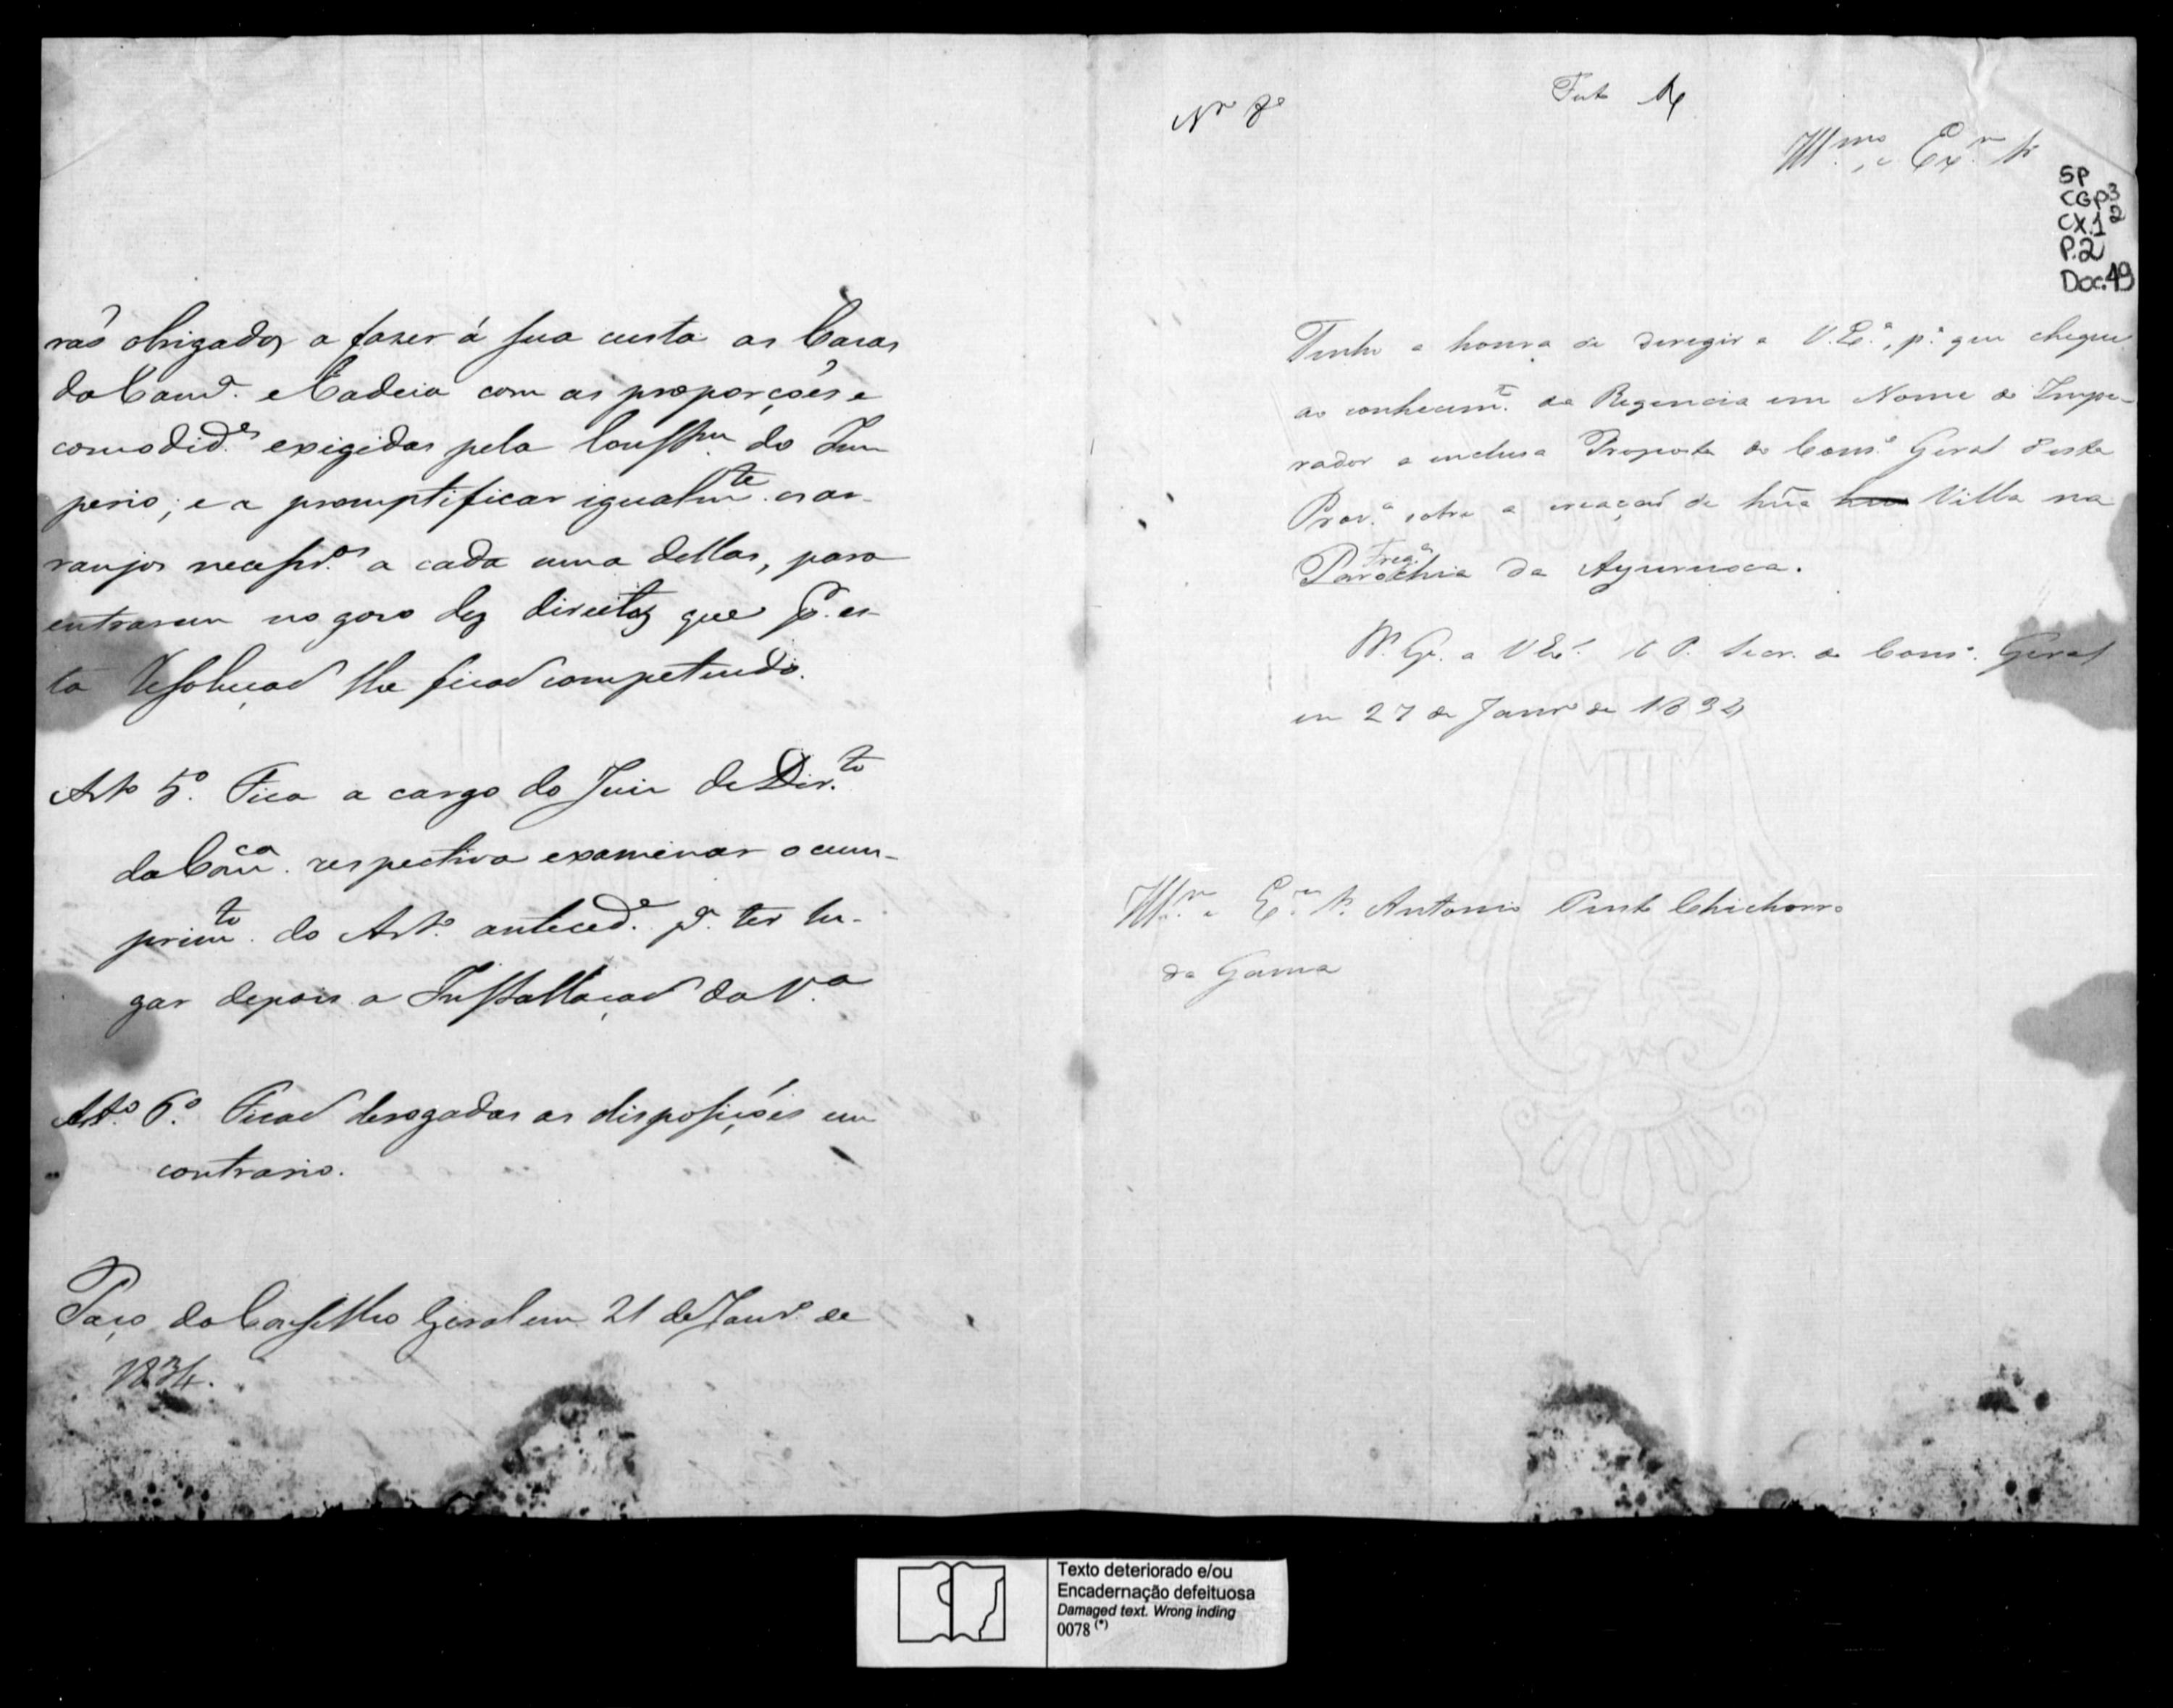 raõ obrigados a fazer á sua custa as Casas
da Cam.ª e Cadeia com as proporções e
comodid.es exigidas pela Constt.m do Im
perio; e a promptificar igualm.te os ar-
ranjos necessr.os a cada uma dellas, para
entrarem no gozo dos direitos que p.r es-
ta Resoluçaõ lhe ficaõ competindo.
Art.o 5.o Fica a cargo do Juiz de Dir.to
da Com.ca respectiva examinar o cum-
prim.to do Art.o anteced.e p.a ter lu-
gar depois a Installaçaõ da V.a
Art.o 6.o Ficaõ derogadas as disposições em
contrario.
Paço do Conselho Geral em 21 de Janr.o de
1834.
Ill.mo e Ex.mo Sr
SP
CGP3
CX.1 2
P.2
Doc.49
Tenho a honra de deregir a V. Ex.a, p.a que chegue
ao conhecim.to da Regencia em Nome do Impe-
rador a inclusa Proposta do Cons.o Geral desta
Prov.a sobre a creaçaõ de hũa Villa na
Freg.a
Parochia da Ayuruoca.
D.s G.e a V Ex.a S. P. Secr. do Cons.o Geral
em 27 de Janr.o de 1834
Ill.mo e Ex.mo Sr. Antonio Pinto Chichorro
da Gama
Texto deteriorado e/ou
Encadernação defeituosa
Damaged text. Wrong inding
0078 (*)